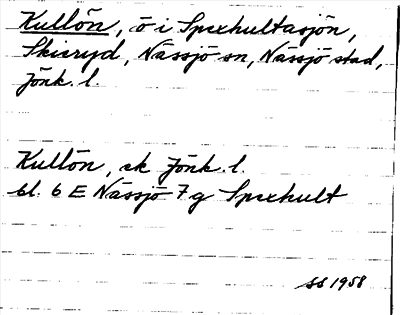 Kullön, ö i Spexhultasjön,
Skieryd, Nässjö sn, Nässjö stad,
Jönk. l.
Kullön, ek Jönk. l.
bl. 6 E Nässjö 7 g Spexhult
SS 1958